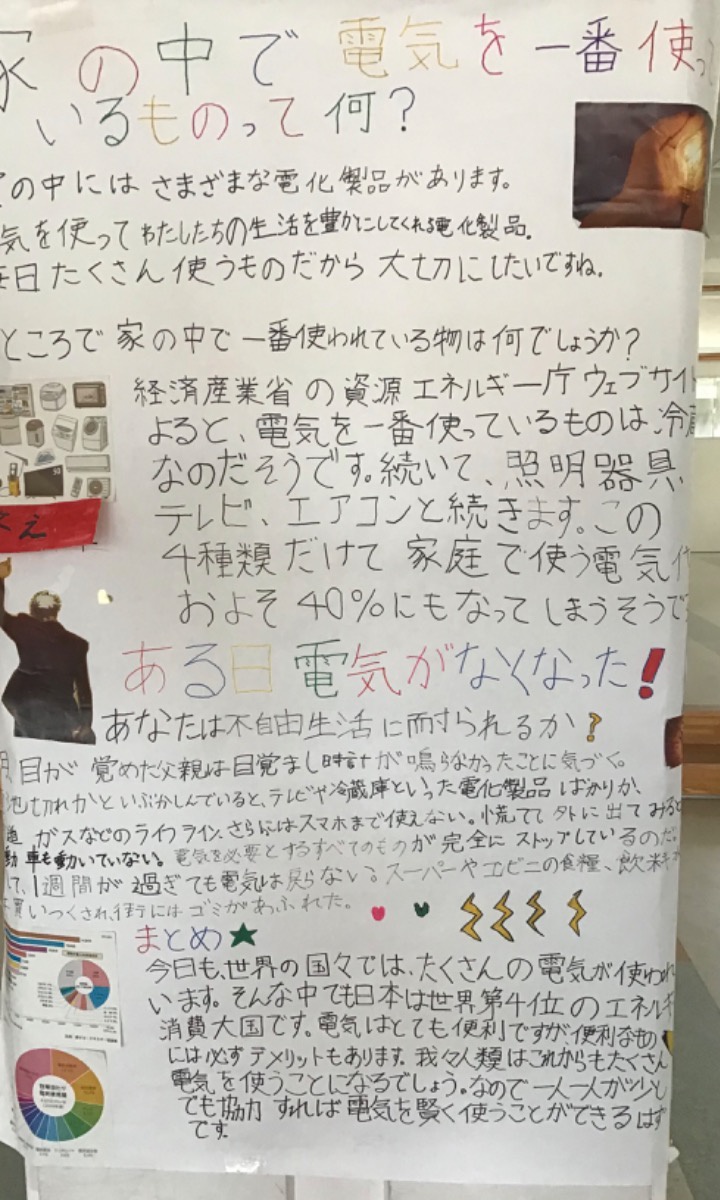 家の中で電気を一番使っ
いるものって何?
の中には さまざまな電化製品があります。
気を使って わたしたちの生活を豊かにしてくれる電化製品。
毎日 たくさん使うものだから 大切にしたいですね。
ところで 家の中で 一番使われている物は何でしょうか?
経済産業省 の 資源 エネルギー庁 ウェブサイト
よると、電気を一番使っているものは、冷蔵
なのだそうです。続いて、照明器具、
テレビ、エアコンと続きます。この
4種類だけで 家庭で使う電気代
およそ 40%にもなってしまうそうで
ある日電気がなくなった!
あなたは不自由生活に耐られるか?
目が覚めた父親は目覚まし時計が鳴らなかったことに気づく。
池切れかといぶかしんでいると、テレビや冷蔵庫といった電化製品ばかりか、
道 ガスなどのライフライン、さらにはスマホまで使えない。慌てて外に出てみると
動車も動いていない。電気を必要とするすべてのものが完全にストップしているのだ。
て、1週間が過ぎても電気は戻らない。スーパーやコンビニの食糧、飲料
買いつくされ、街にはゴミがあふれた。
まとめ★
今日も、世界の国々では、たくさんの電気が使われ
います。そんな中でも日本は世界第4位のエネルギ
消費大国です。電気はとても便利ですが、便利なもの
には必ずデメリットもあります。我々人類はこれからもたくさん
電気を使うことになるでしょう。なので一人一人が少し
でも協力すれば電気を賢く使うことができるはず
です。